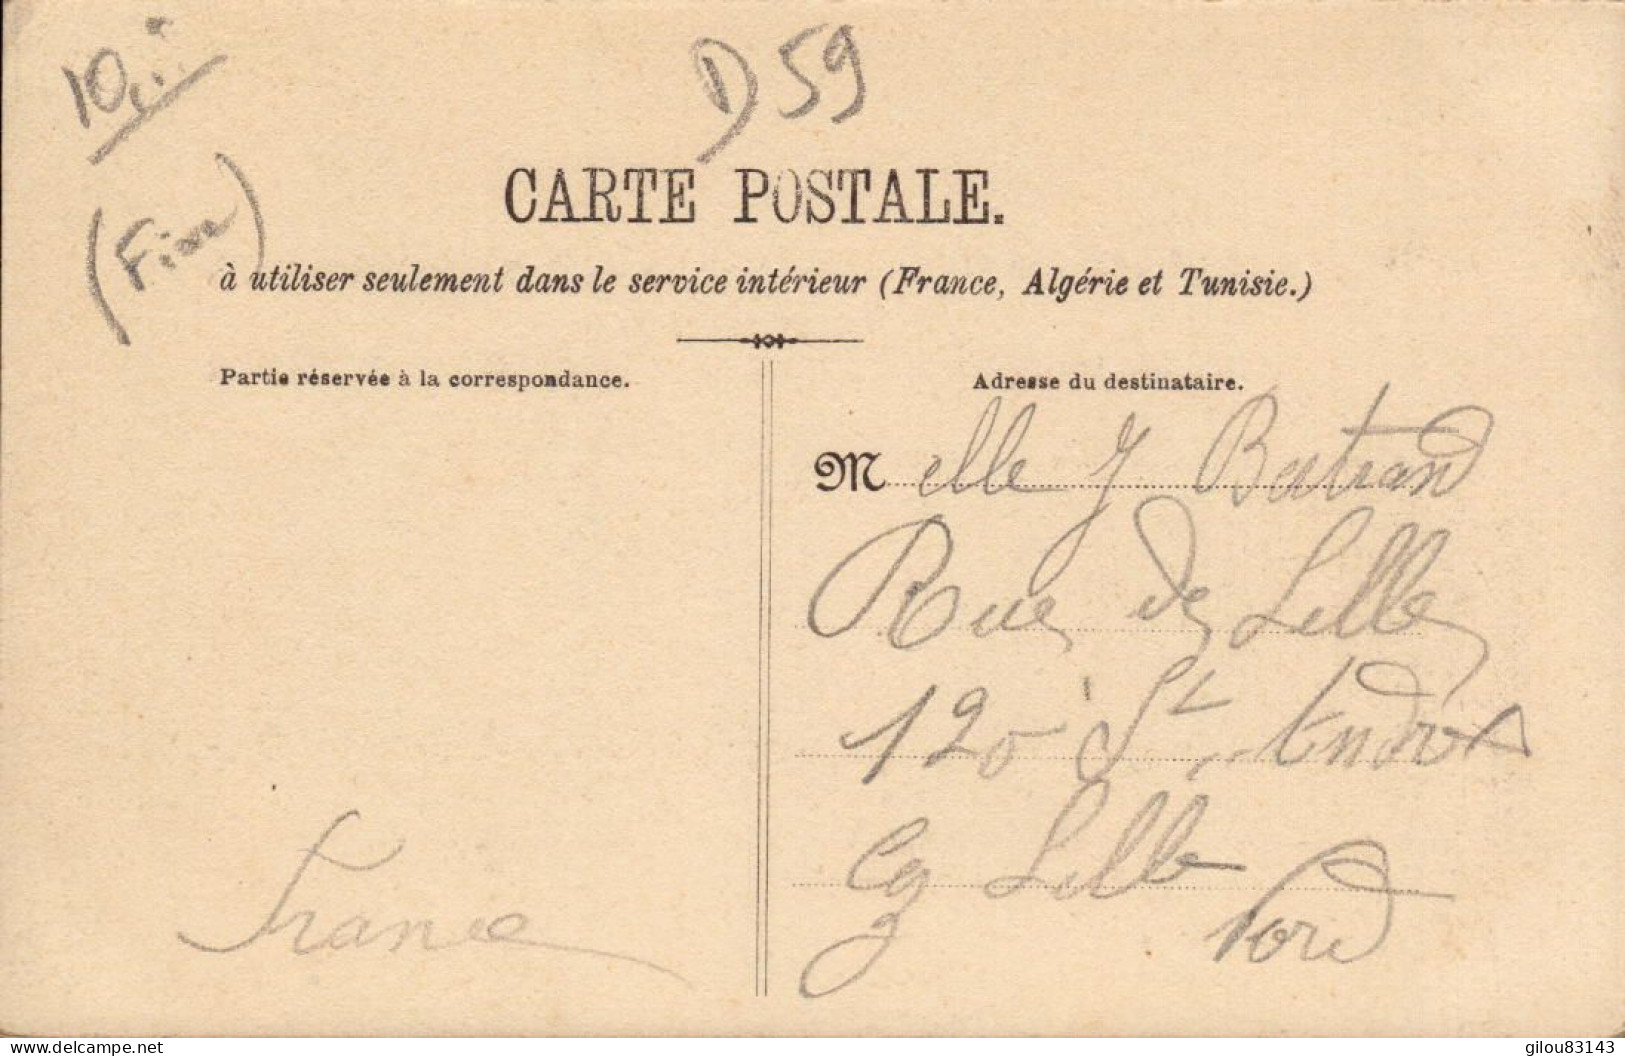 10,..
D59
(Fixe)
CARTE POSTALE.
à utiliser seulement dans le service intérieur (France, Algérie et Tunisie.)
Partie réservée à la correspondance.
Adresse du destinataire.
Melle J Bertrand
Rue de Lille
120 St André
Lez Lille
Nord
France
delcampe.net
gilou83143